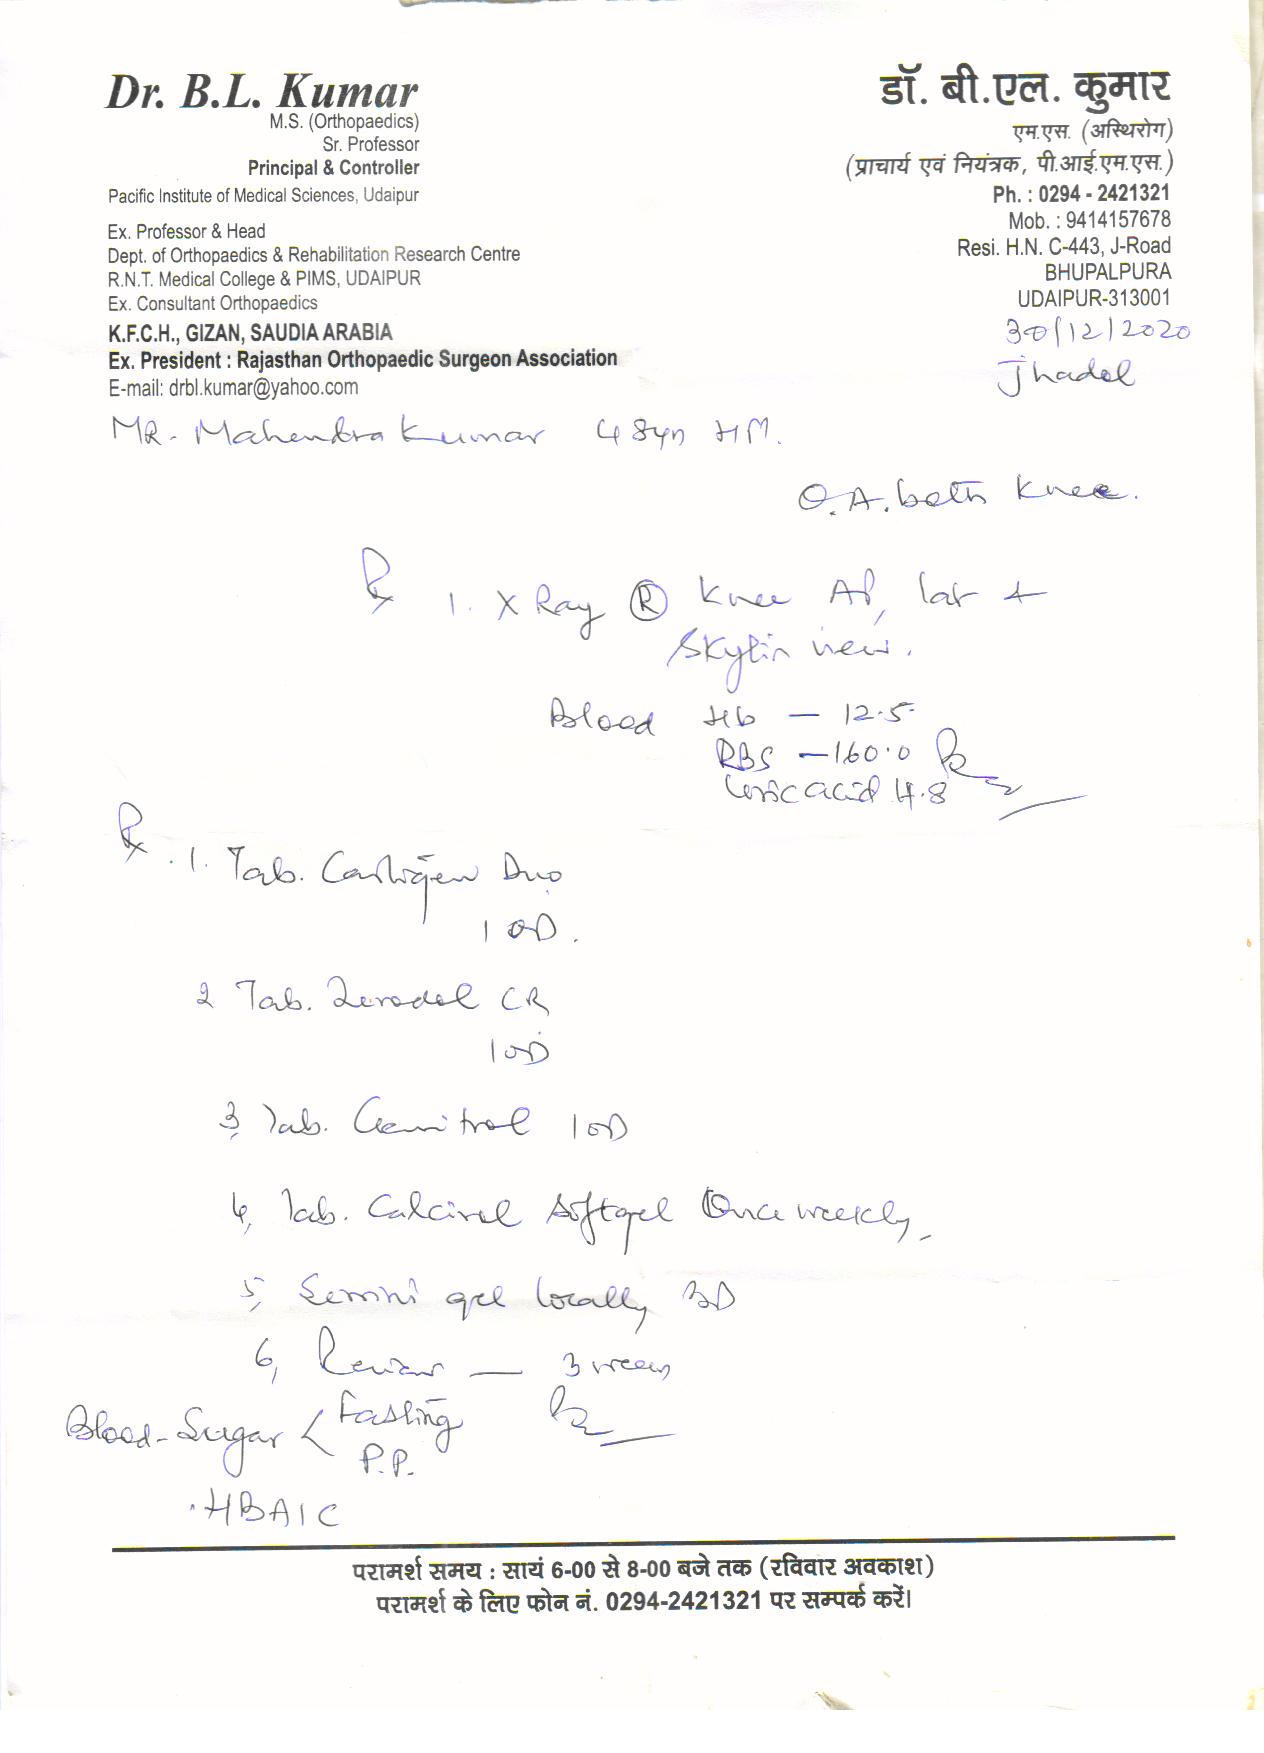 Dr. B.L. Kumar
M.S. (Orthopaedics)
Sr. Professor
Principal & Controller
Pacific Institute of Medical Sciences, Udaipur
Ex. Professor & Head
Dept. of Orthopaedics & Rehabilitation Research Centre
R.N.T. Medical College & PIMS, UDAIPUR
Ex. Consultant Orthopaedics
K.F.C.H., GIZAN, SAUDIA ARABIA
Ex. President : Rajasthan Orthopaedic Surgeon Association
E-mail: drbl.kumar@yahoo.com
डॉ. बी.एल. कुमार
एम.एस. (अस्थिरोग)
(प्राचार्य एवं नियंत्रक, पी.आई.एम.एस.)
Ph. : 0294 - 2421321
Mob. : 9414157678
Resi. H.N. C-443, J-Road
BHUPALPURA
UDAIPUR-313001
30/12/2020
Jhadol
MR. Mahendra Kumar 48yrs HM.
O.A. both Knee.
Rx 1. X Ray (R) Knee AP, lat +
Skylin view.
Blood Hb — 12.5
RBS — 160.0
Uric acid 4.8
Rx 1. Tab. Cartigen Duo
1 OD.
2 Tab. Zerodol CR
1 OD
3, Tab. 1 OD
4, Tab. Calcirol Softgel Once weekly
5, gel locally BD
6, Review — 3 weeks
Blood-Sugar < Fasting
P.P.
HBA1C
परामर्श समय : सायं 6-00 से 8-00 बजे तक (रविवार अवकाश)
परामर्श के लिए फोन नं. 0294-2421321 पर सम्पर्क करें।